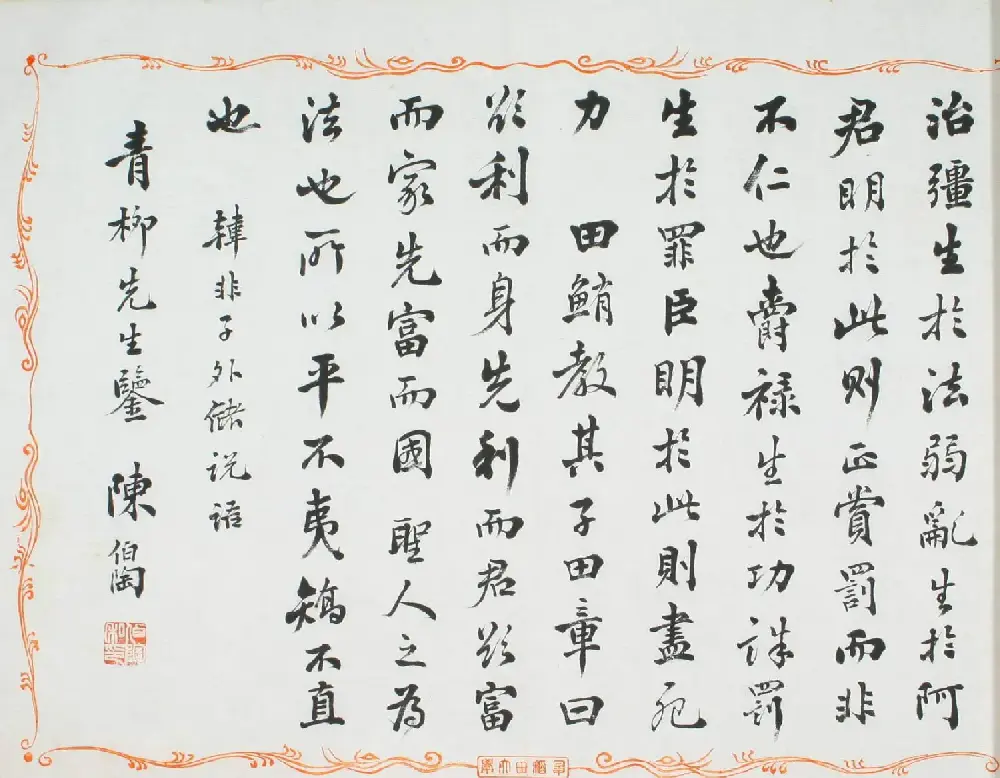 治彊生於法弱亂生於阿
君明於此則正賞罰而非
不仁也爵祿生於功誅罰
生於罪臣明於此則盡死
力 田鮪教其子田章曰
欲利而身先利而君欲富
而家先富而國 聖人之為
法也所以平不夷矯不直
也 韓非子外儲說語
青柳先生鑒 陳伯陶